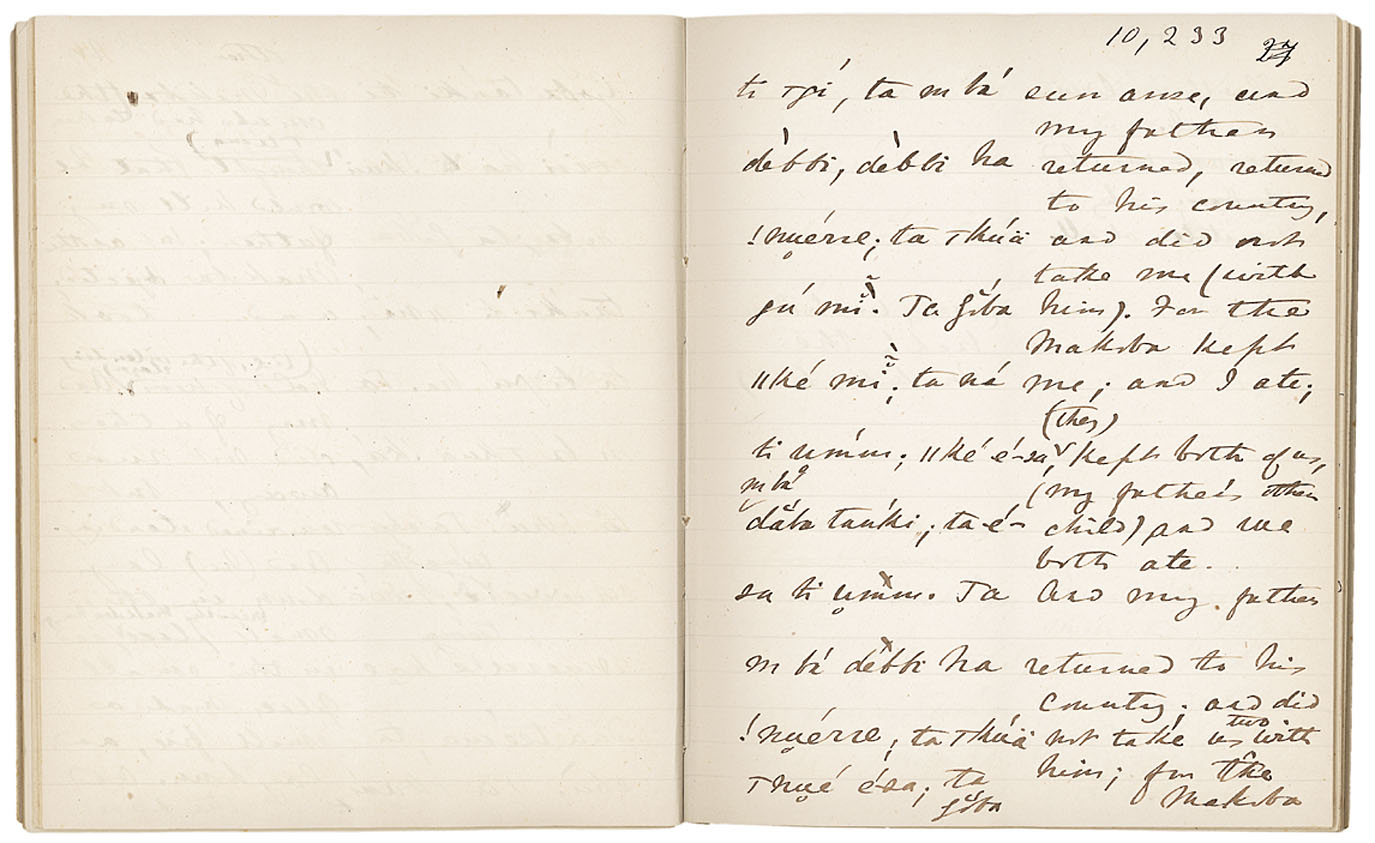 10,233 27
ti ҭgí, ta m bá sun arose, and
my father
dèbbi, dèbbi ha returned, returned
to his country,
!nuérre; ta ҭkúä and did not
take me (with
gú mi. Ta gŏ́ba him). For the
Makoba kept
ǁké mi; ta ná me; and I ate;
(they)
ti úmm; ǁké é-sa kept both of us,
m bá (my father's other
dăba tańki; ta é- child) and we
both ate.
sa ti umm. Ta And my father
m bá dèbbi ha returned to his
country; and did
two
!nuérre, ta ҭkúä not take us with
him; for the
ҭnué ésa; ta Makoba
gŏ́ba